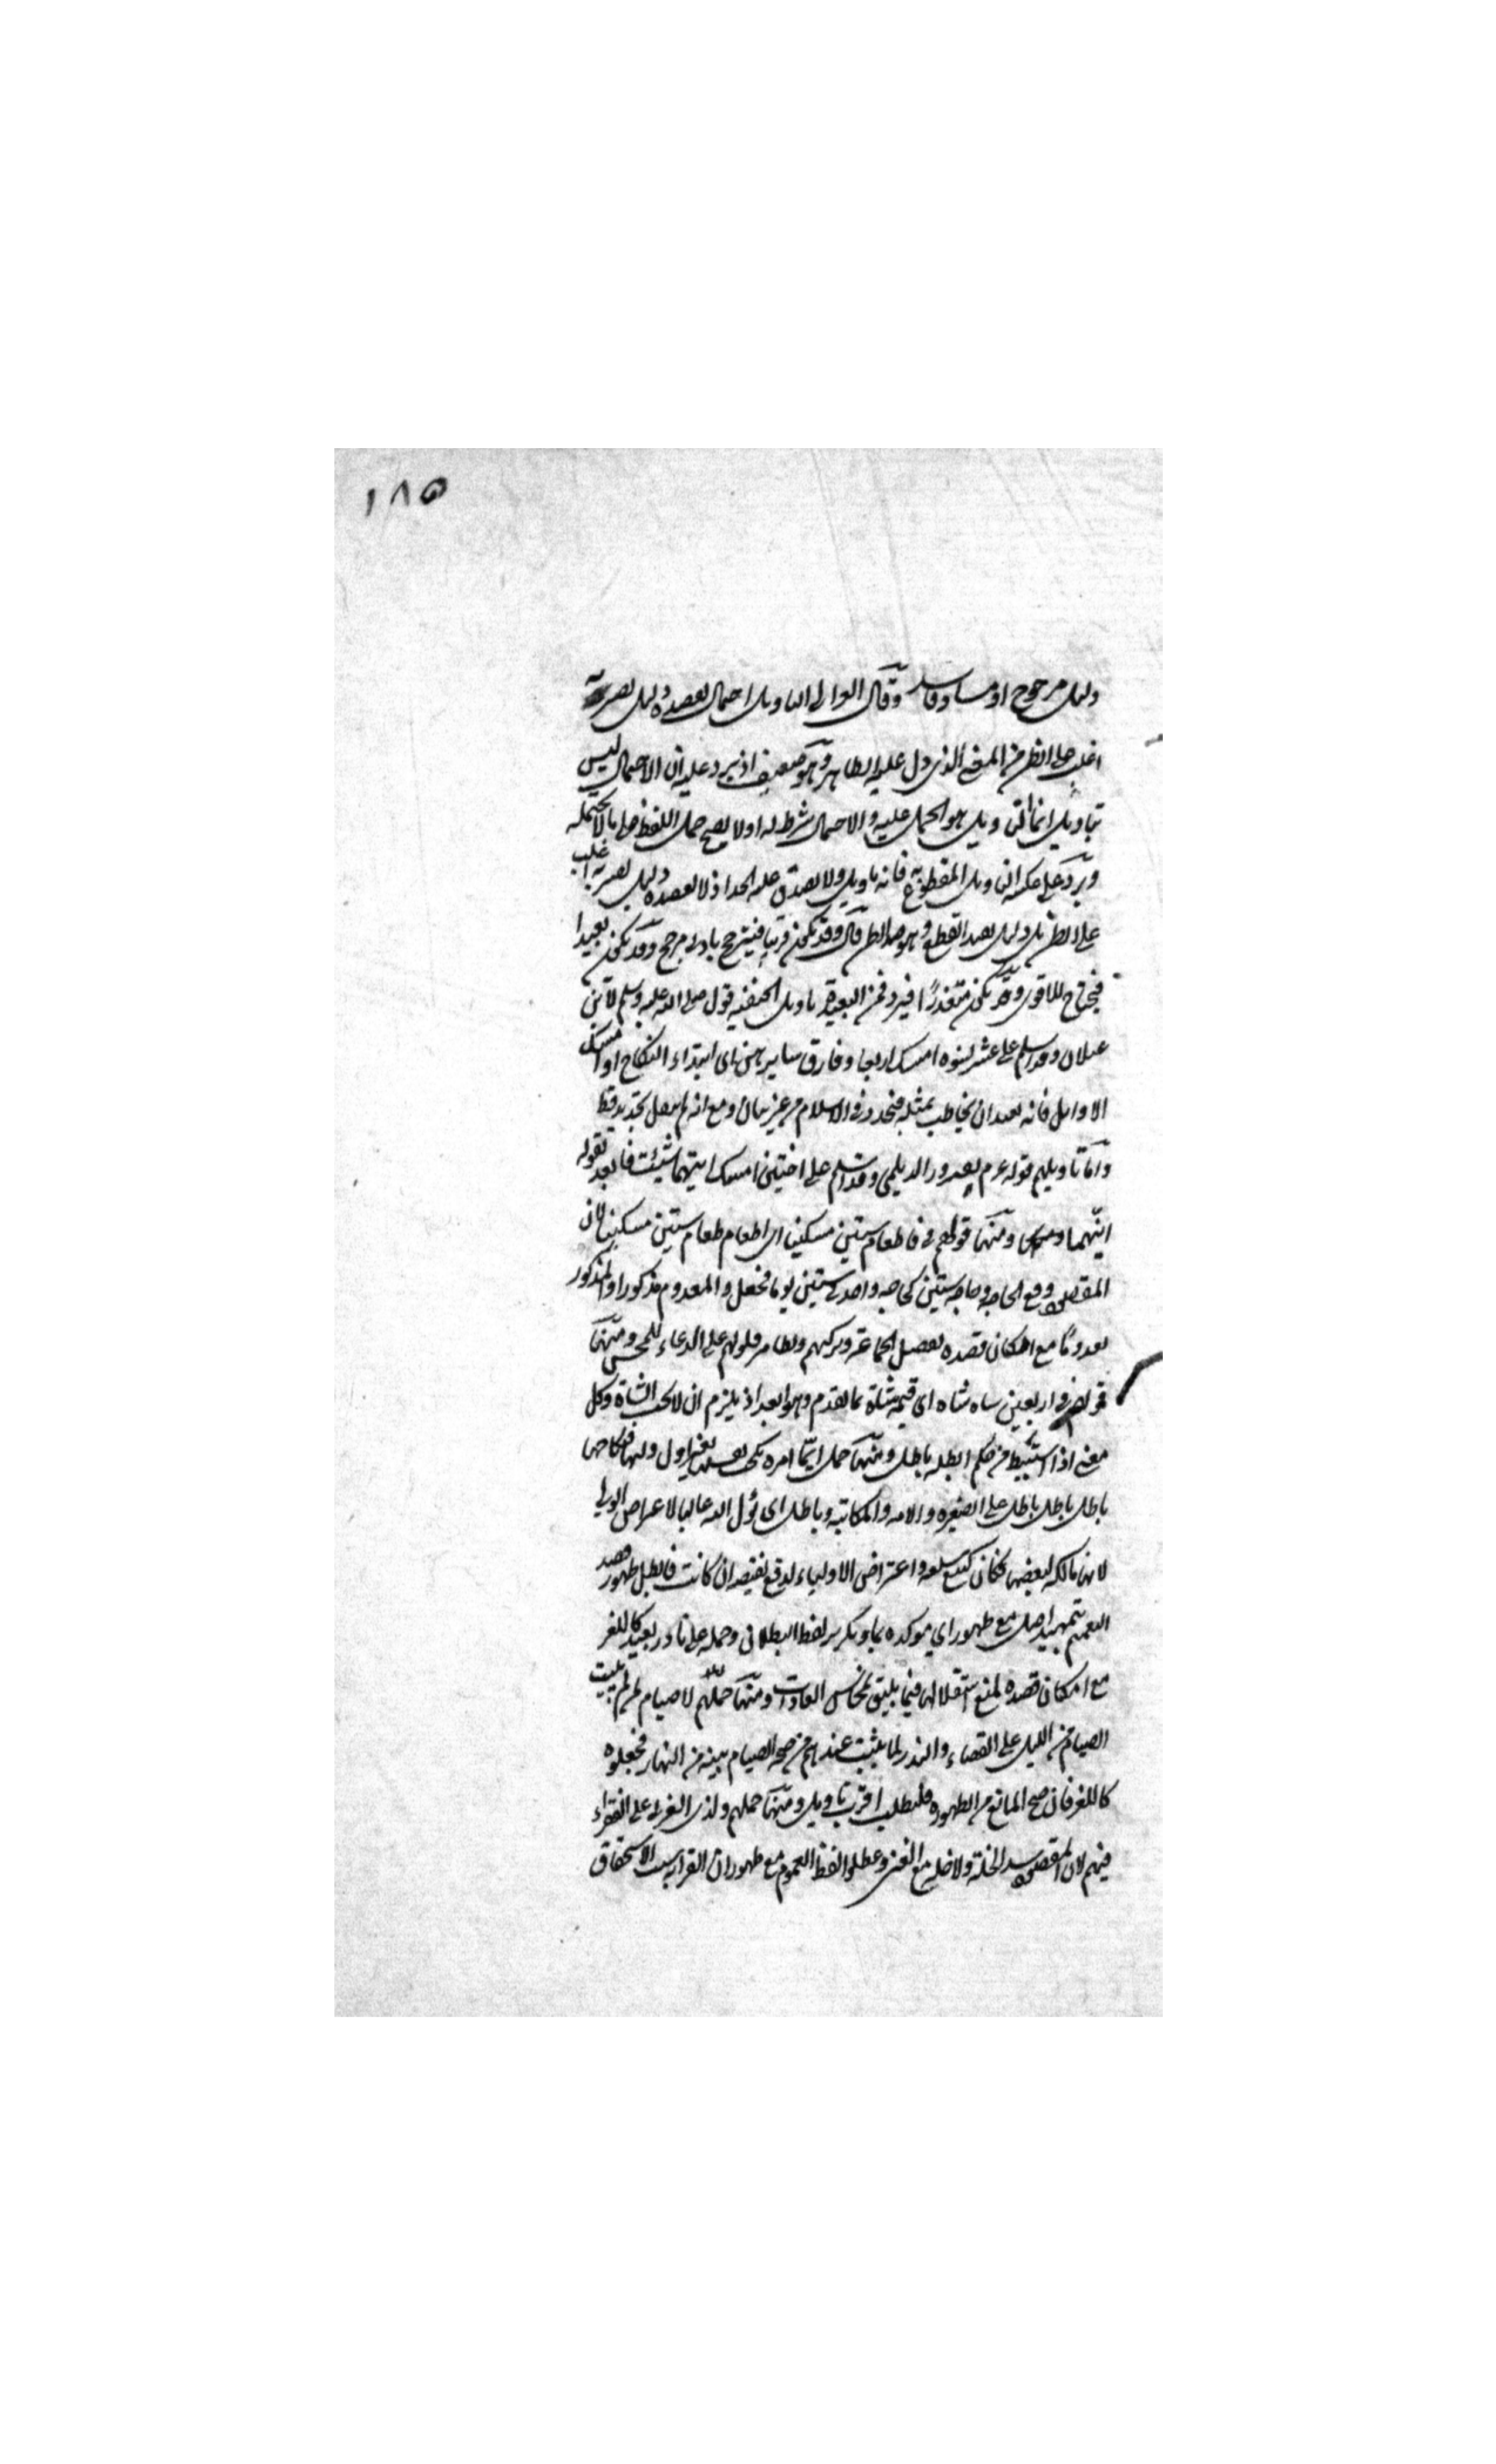 ١٨٥
دليل مرجوح او مساو فاسد وقال الغزالي التاويل احتمال يعضده دليل يصير به
اغلب على الظن من المعنى الذي دل عليه الظاهر وهو ضعيف اذ يرد عليه ان الاحتمال ليس
بتاويل انما التاويل هو الحمل عليه والاحتمال شرط له اذ لا يصح حمل اللفظ على ما لا يحتمله
ويرد على عكسه التاويل المقطوع به فانه تاويل ولا يصدق عليه الحد اذ لا يعضده دليل يصير به اغلب
على الظن بل دليل يفيد القطع وهو ضد الظن قال وقد يكون قريبا فيترجح بادنى مرجح وقد يكون بعيدا
فيحتاج للاقوى وقد يكون متعذرا فيرد فمن البعيد تاويل الحنفية قول صلى الله عليه وسلم لابن
غيلان وقد اسلم على عشر نسوة امسك اربعا وفارق سايرهن اى ابتداء النكاح او امسك
الاوايل فانه يبعد ان يخاطب بمثله متجدد في الاسلام من غير بيان ومع انه لم ينقل تجديد قط
واما تاويلهم قوله عم لفيروز الديلمي وقد اسلم على اختين امسك ايتهما شئت فابعد لقوله
ايتهما ومنها قولهم في فاطعام ستين مسكينا اى اطعام طعام ستين مسكينا لان
المقصود دفع الحاجة وحاجة ستين كحاجة واحد في ستين يوما فجعل المعدوم مذكورا والمذكور
معدوما مع امكان قصده لفضل الجماعة وبركتهم وتظافر قلوبهم على الدعاء للمحسن ومنها
قولهم في اربعين شاه شاه اى قيمة شاة بما تقدم وهو ابعد اذ يلزم ان لا يجب الشاة وكل
معنى اذا استنبط من حكم ابطله باطل ومنها حمل ايما امرءة نكحت نفسها بغير اذن وليها فنكاحها
باطل باطل باطل على الصغيره والامه والمكاتبة وباطل اى يؤل اليه غالبا لاعتراض الولي
لانها مالكه لبضعها فكان كبيع سلعه واعتراض الاولياء لدفع نقيصه ان كانت فابطل ظهور قصد
التعميم بتمهيد اصل مع ظهور اي موكده بما وتكرير لفظ البطلان وحمله على نادر بعيد كاللغز
مع امكان قصده لمنع استقلالها فيما يليق بمحاسن العادات ومنها حملهم لا صيام لمن لم يبيت
الصيام من الليل على القضاء والنذر لما ثبت عندهم من صحة الصيام بنية من النهار فجعلوه
كاللغز فان صح المانع من الظهور فليطلب اقرب تاويل ومنها حملهم ولذى القربى على الفقراء
منهم لان المقصود سد الخلة ولا خلة مع الغنى وعطلوا لفظ العموم مع ظهور ان القرابة سبب الاستحقاق